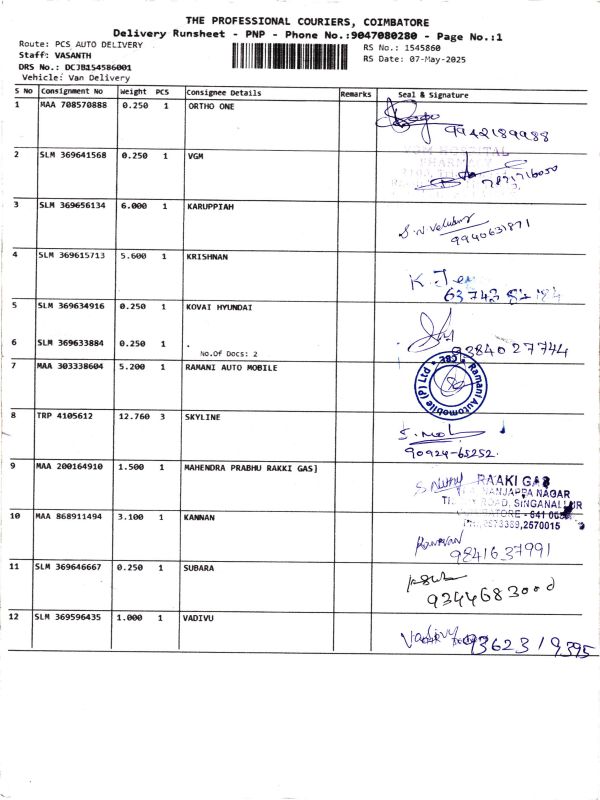 THE PROFESSIONAL COURIERS, COIMBATORE
Delivery Runsheet - PNP - Phone No.:9047080280 - Page No.:1
Route: PCS AUTO DELIVERY RS No.: 1545860
Staff: VASANTH RS Date: 07-May-2025
DRS No.: DCJB154586001
Vehicle: Van Delivery
S No Consignment No Weight PCS Consignee Details Remarks Seal & Signature
1 MAA 708570888 0.250 1 ORTHO ONE
9942189988
2 SLM 369641568 0.250 1 VGM
VGM HOSPITAL
PHARMACY
3 SLM 369656134 6.000 1 KARUPPIAH
9940631871
4 SLM 369615713 5.600 1 KRISHNAN
5 SLM 369634916 0.250 1 KOVAI HYUNDAI
6 SLM 369633884 0.250 1 .
No.Of Docs: 2
9384027744
7 MAA 303338604 5.200 1 RAMANI AUTO MOBILE
Ramani Automobile (P) Ltd
8 TRP 4105612 12.760 3 SKYLINE
90924-65252
9 MAA 200164910 1.500 1 MAHENDRA PRABHU RAKKI GAS]
RAAKI GAS
NANJAPPA NAGAR
ROAD, SINGANALLUR
- 641 005
2573389,2570015
10 MAA 868911494 3.100 1 KANNAN
9841637991
11 SLM 369646667 0.250 1 SUBARA
9344683000
12 SLM 369596435 1.000 1 VADIVU
Vadivu 9362319395